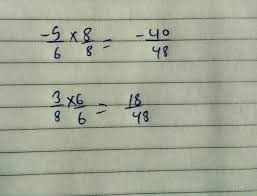 -5/6 × 8/8 = -40/48
3/8 × 6/6 = 18/48